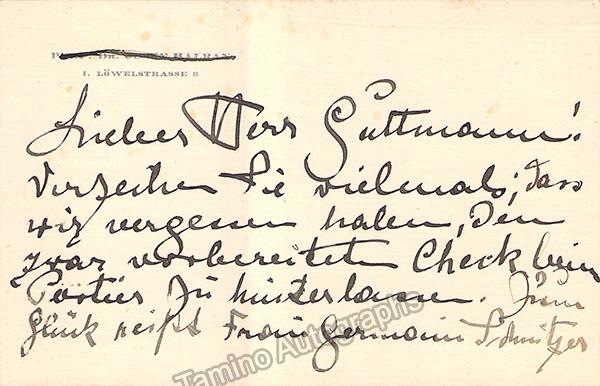 PROF. DR. JOSEF HALBAN
I. LÖWELSTRASSE 8
Liebes Herr Guttmann!
Verzeihen Sie vielmals, dass
wir vergessen haben, den
zwar vorbereiteten Check beim
Portier zu hinterlassen. Zum
Glück reist Frau Germaine Schnitzer
Tamino Autographs